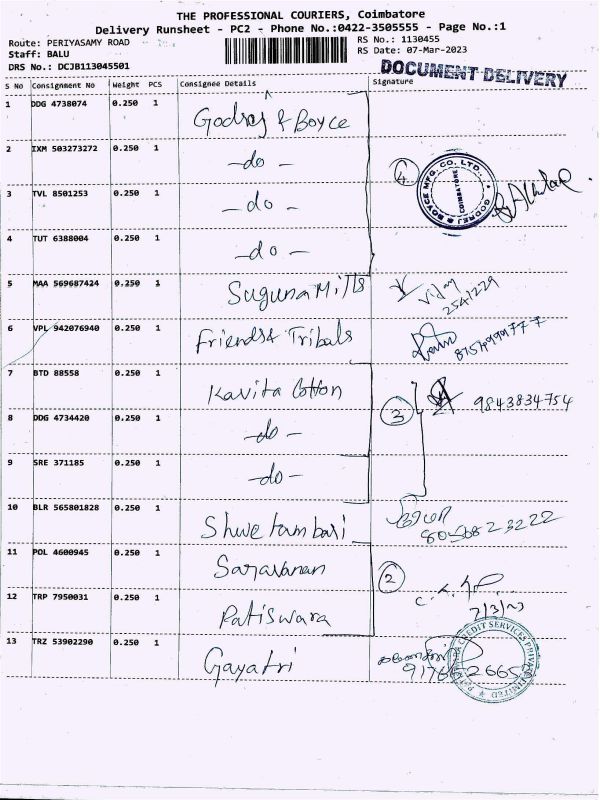 THE PROFESSIONAL COURIERS, Coimbatore
Delivery Runsheet - PC2 - Phone No.:0422-3505555 - Page No.:1
Route: PERIYASAMY ROAD
Staff: BALU
DRS No.: DCJB113045501
RS No.: 1130455
RS Date: 07-Mar-2023
DOCUMENT DELIVERY
S No Consignment No Weight PCS Consignee Details Signature
1 DDG 4738074 0.250 1 Godrej & Boyce
2 IXM 503273272 0.250 1 -do-
3 TVL 8501253 0.250 1 -do-
4 TUT 6388004 0.250 1 -do-
4
GODREJ & BOYCE MFG. CO. LTD.,
COIMBATORE
5 MAA 569687424 0.250 1 Suguna Mills
Vijay
2541229
6 VPL 942076940 0.250 1 Friends & Tribals
8754999777
7 BTD 88558 0.250 1 Kavita Cotton
3 9843834754
8 DDG 4734420 0.250 1 -do-
9 SRE 371185 0.250 1 -do-
10 BLR 565801828 0.250 1 Shwetambari
11 POL 4600945 0.250 1 Saravanan
2
12 TRP 7950031 0.250 1 Patiswara
7/3/23
13 TRZ 53902290 0.250 1 Gayatri
CREDIT SERVICES PRIVATE LIMITED